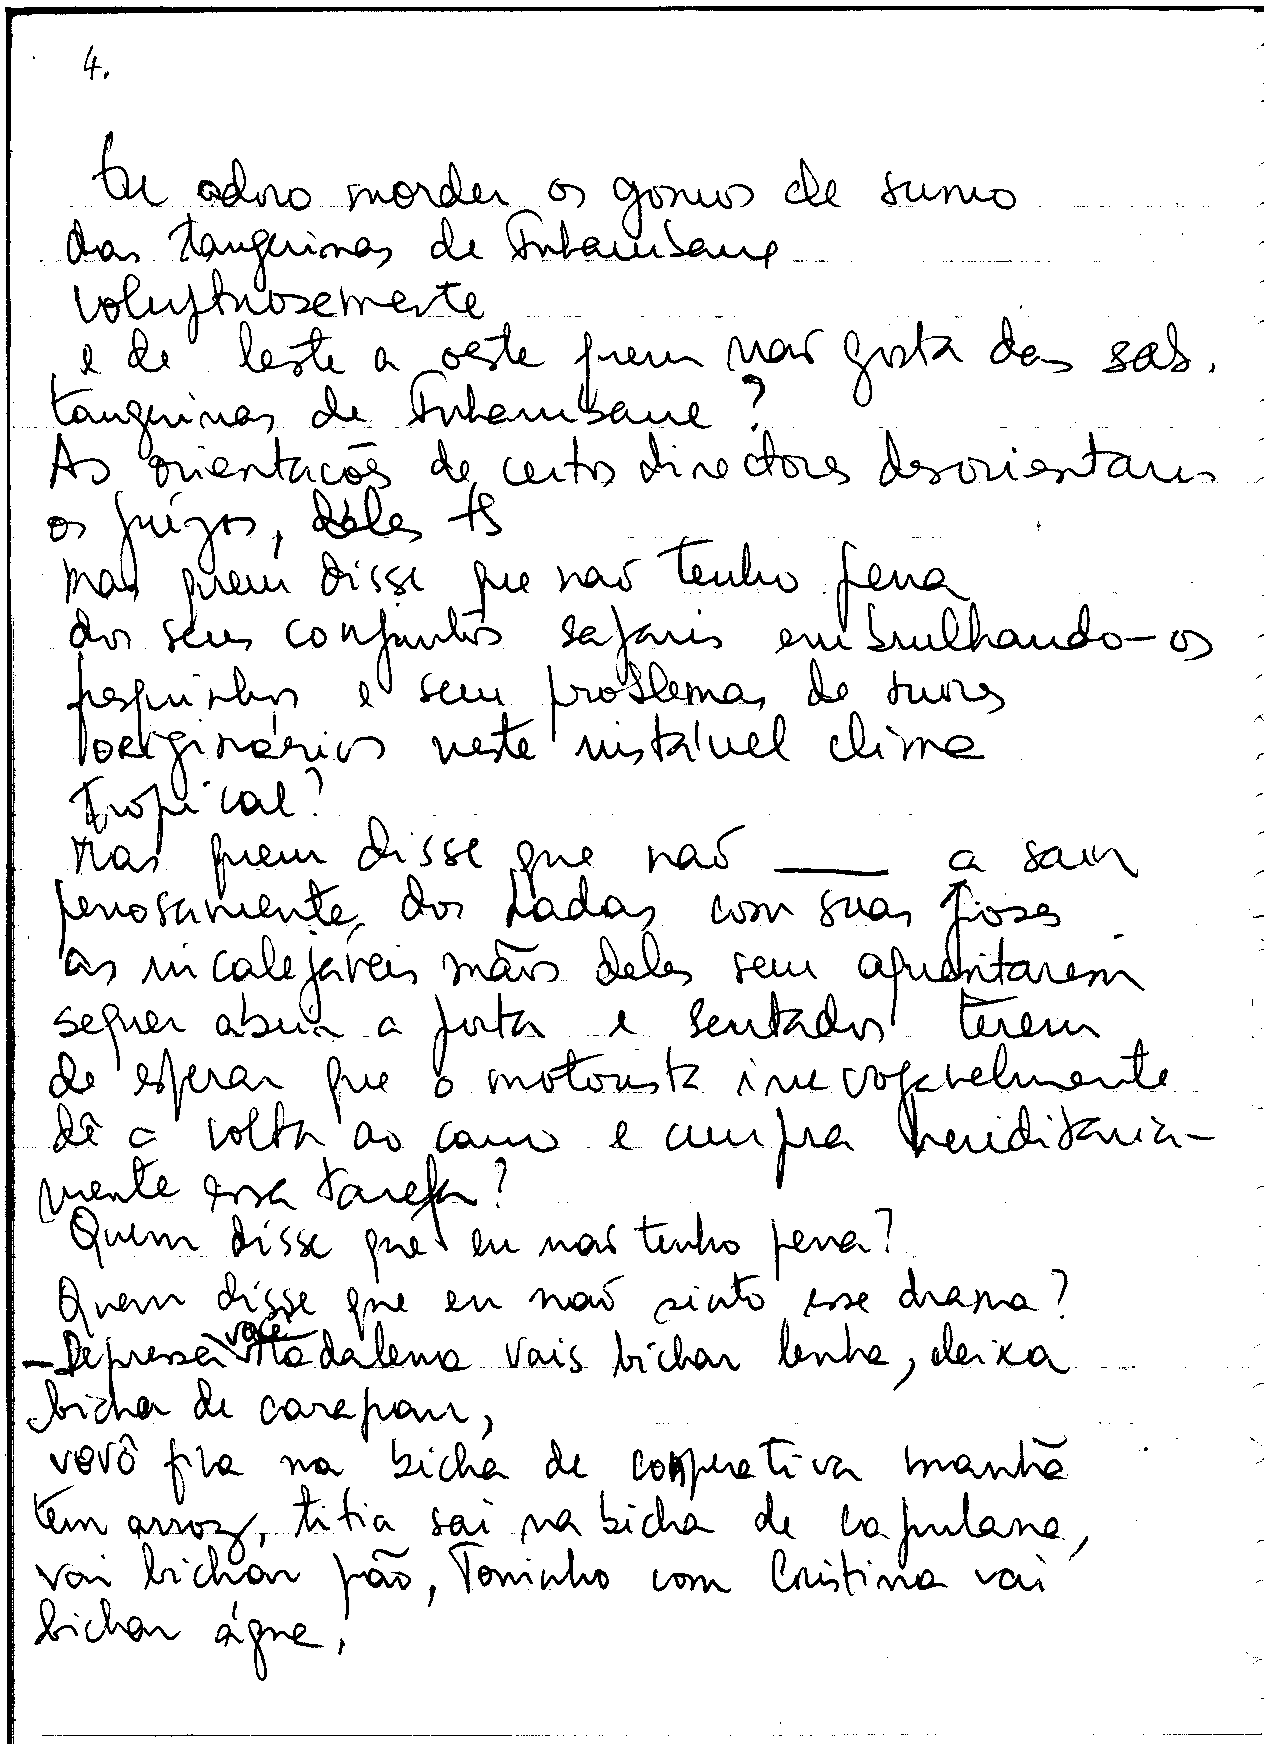 4.
Eu adoro morder os gomos de sumo
das tangerinas de Inhambane
voluptuosamente
e de leste a oeste quem não gosta das sab.
tangerinas de Inhambane?
As orientações de certos directores desorientam
os juízos, deles
mas quem disse que não tenho pena
dos seus conjuntos safaris embrulhando-os
fresquinhos e sem problemas de suores
originários neste instável clima
tropical?
Mas quem disse que não ___ a sair
penosamente dos Ladas com suas poses
as incalejáveis mãos deles sem aguentarem
sequer abrir a porta e sentados terem
de esperar que o motorista irrevogavelmente
dê a volta ao carro e cumpra hereditaria-
mente essa tarefa?
Quem disse que eu não tenho pena?
Quem disse que eu não sinto esse drama?
– Depressa você Madalena vais bichar lenha, deixa
bicha de carapau,
vovô fica na bicha de cooperativa manhã
tem arroz, titia sai na bicha de capulana,
vai bichar pão, Toninho com Cristina vai
bichar água,